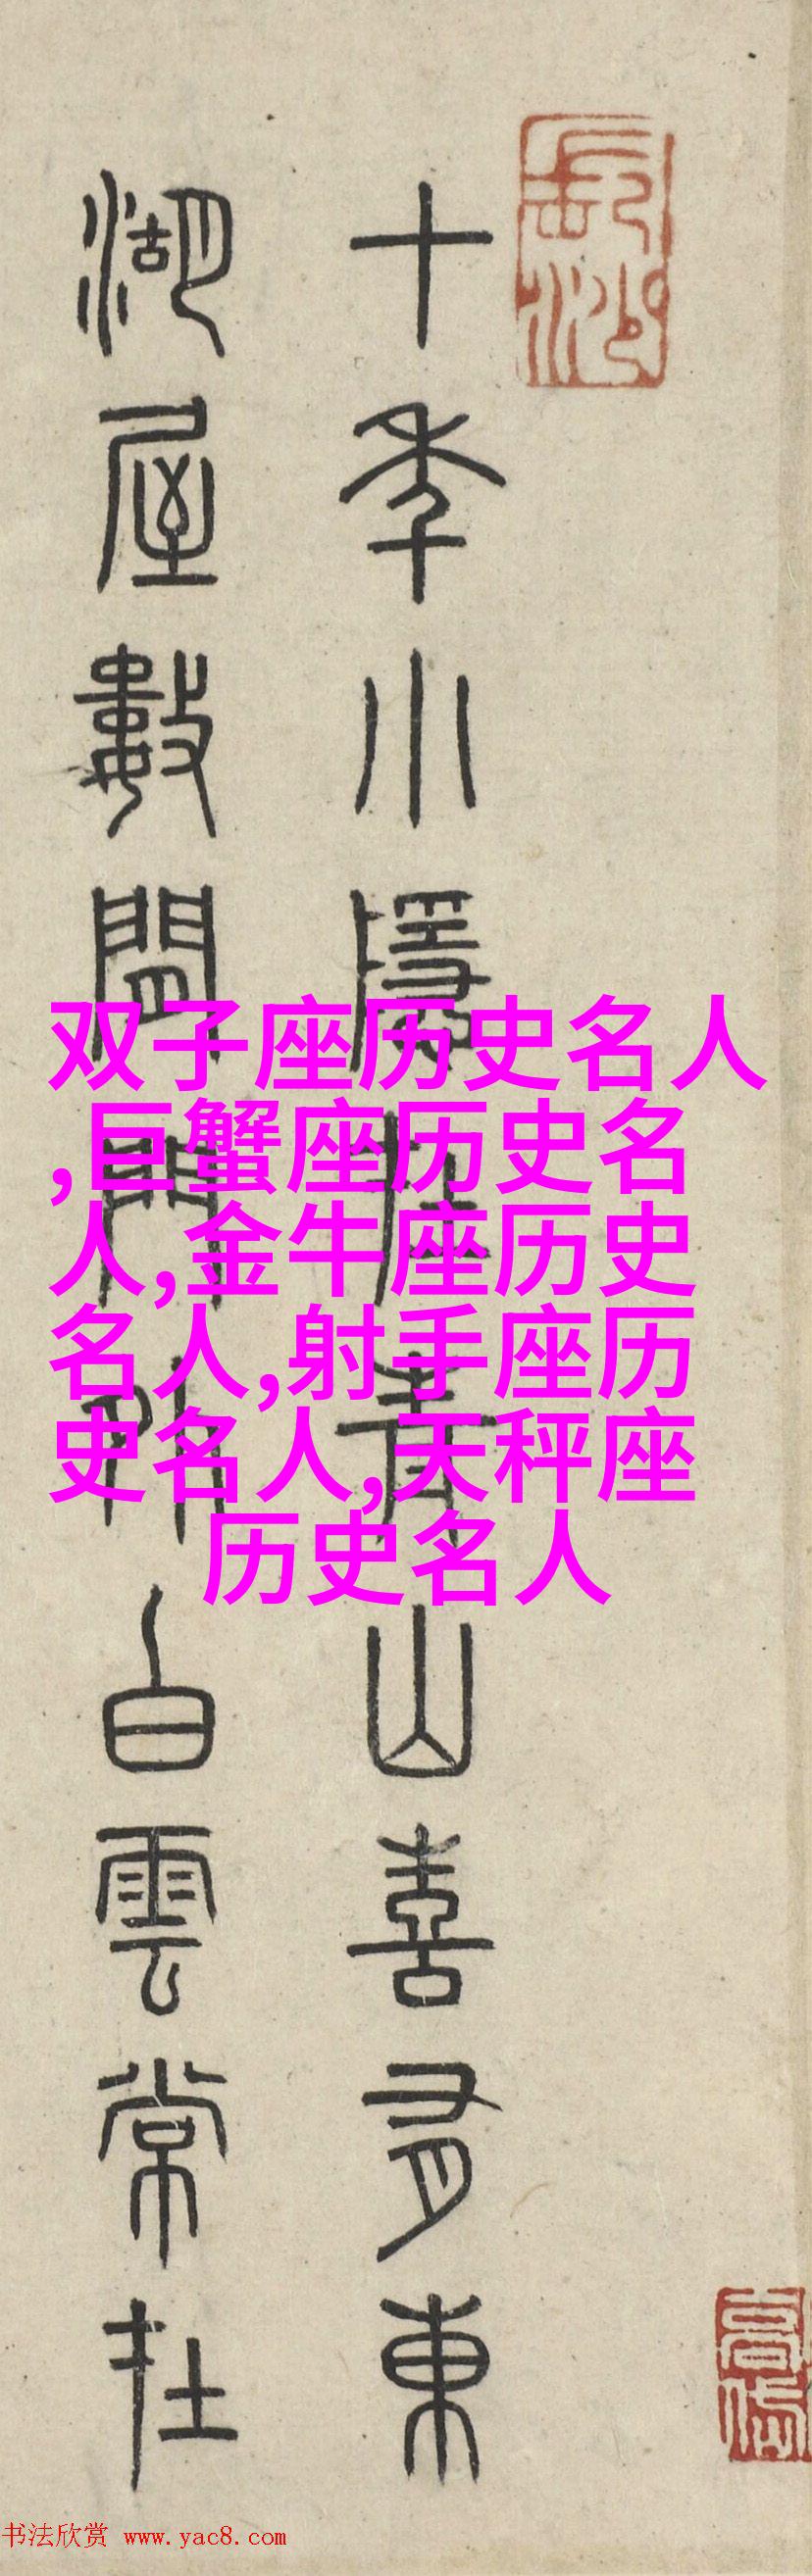 十年小隱在青山喜有東
湖屋數間門外白雲常在
双子座历史名人
,巨蟹座历史名
人,金牛座历史
名人,射手座历
史名人,天秤座
历史名人
书法欣赏 www.yac8.com